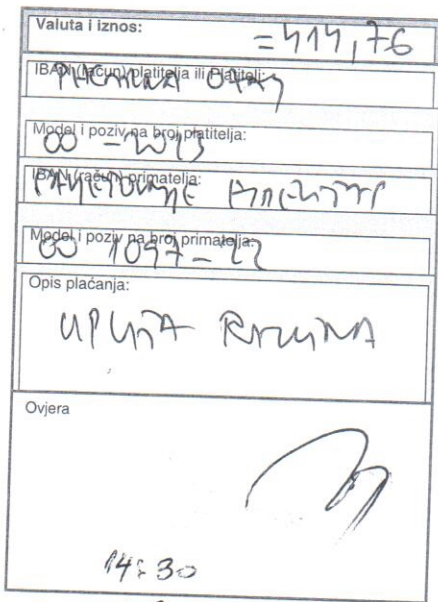 Valuta i iznos:
=414,76
IBAN (račun) platitelja ili Platitelj:
Model i poziv na broj platitelja:
00 -
IBAN (račun) primatelja:
Model i poziv na broj primatelja:
00 1097-22
Opis plaćanja:
UPLATA RAČUNA
Ovjera
14:30